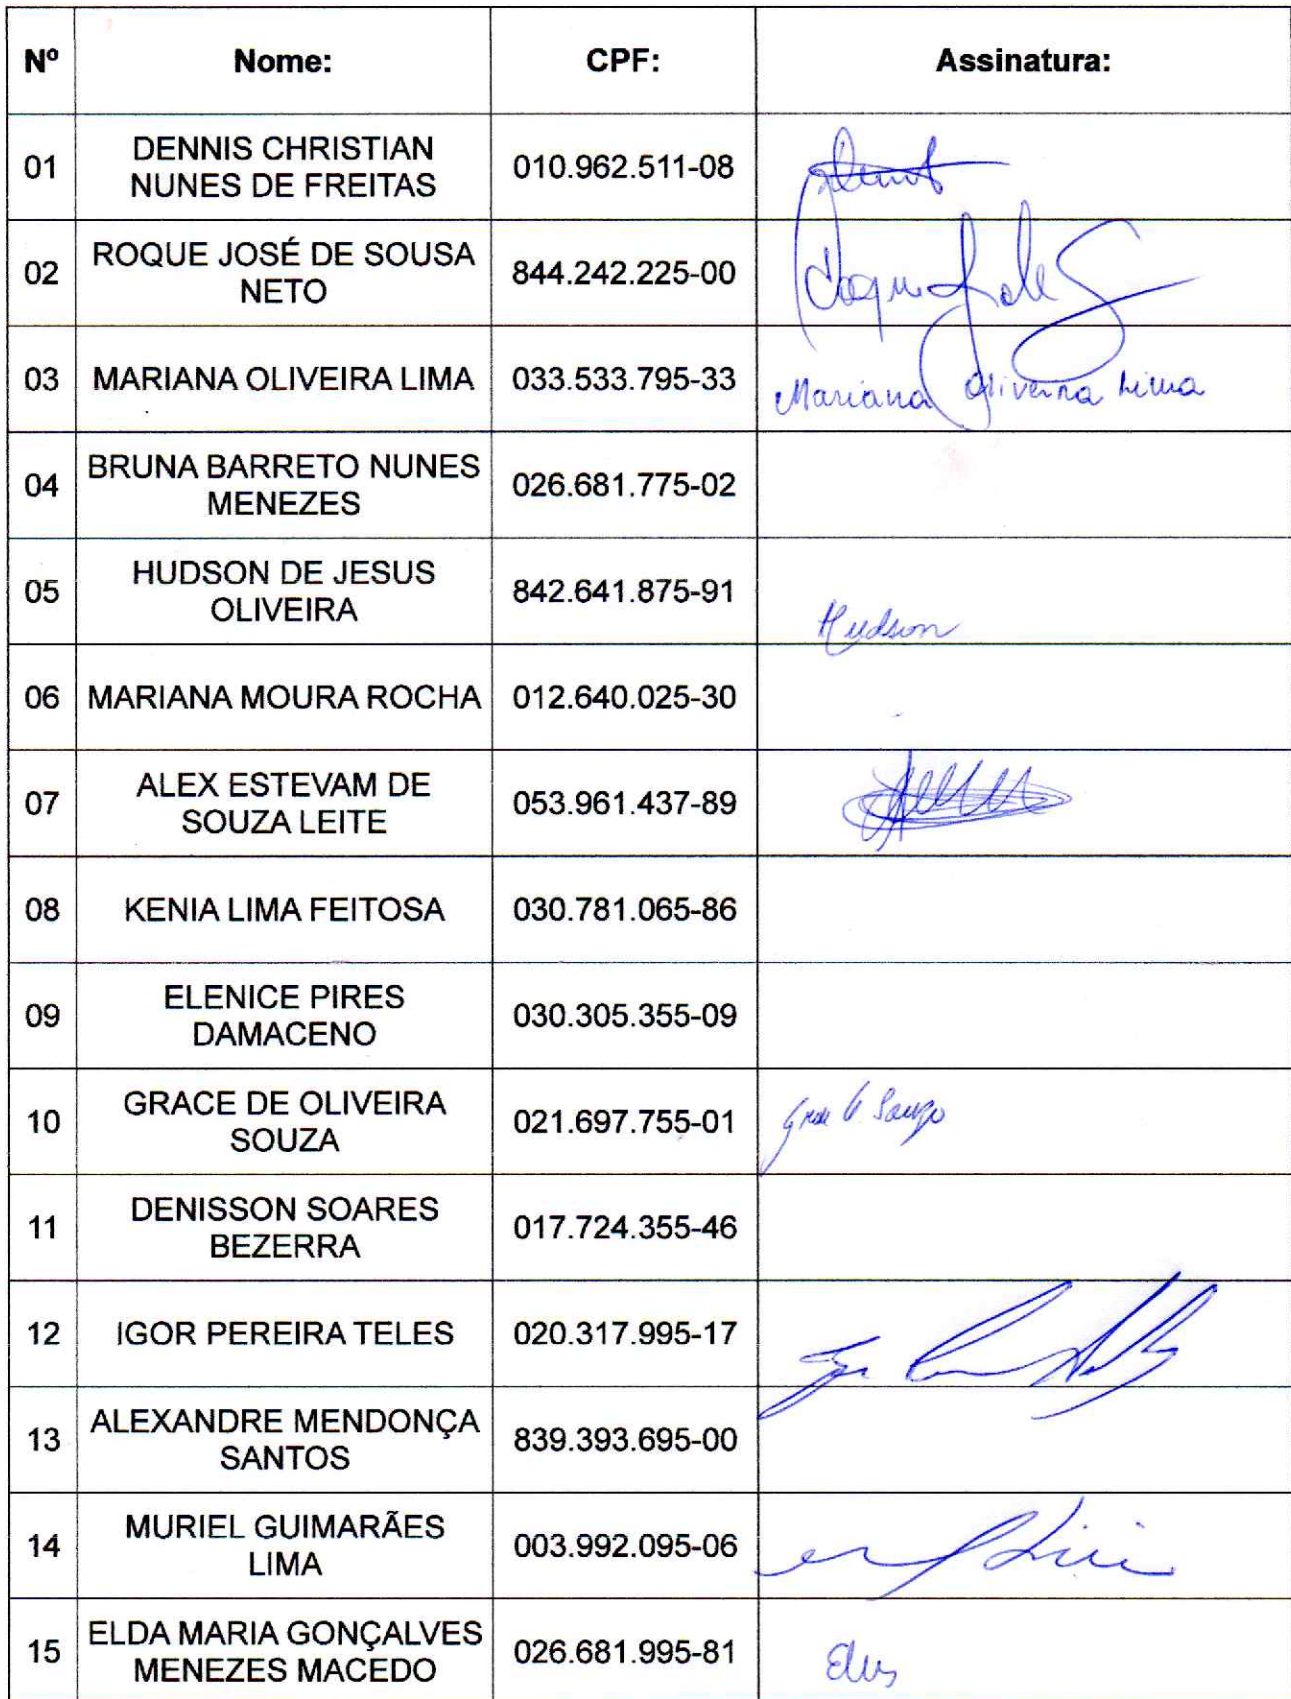 Nº Nome: CPF: Assinatura:
01 DENNIS CHRISTIAN
NUNES DE FREITAS 010.962.511-08
02 ROQUE JOSÉ DE SOUSA
NETO 844.242.225-00
03 MARIANA OLIVEIRA LIMA 033.533.795-33 Mariana Oliveira Lima
04 BRUNA BARRETO NUNES
MENEZES 026.681.775-02
05 HUDSON DE JESUS
OLIVEIRA 842.641.875-91 Hudson
06 MARIANA MOURA ROCHA 012.640.025-30
07 ALEX ESTEVAM DE
SOUZA LEITE 053.961.437-89
08 KENIA LIMA FEITOSA 030.781.065-86
09 ELENICE PIRES
DAMACENO 030.305.355-09
10 GRACE DE OLIVEIRA
SOUZA 021.697.755-01
11 DENISSON SOARES
BEZERRA 017.724.355-46
12 IGOR PEREIRA TELES 020.317.995-17
13 ALEXANDRE MENDONÇA
SANTOS 839.393.695-00
14 MURIEL GUIMARÃES
LIMA 003.992.095-06
15 ELDA MARIA GONÇALVES
MENEZES MACEDO 026.681.995-81